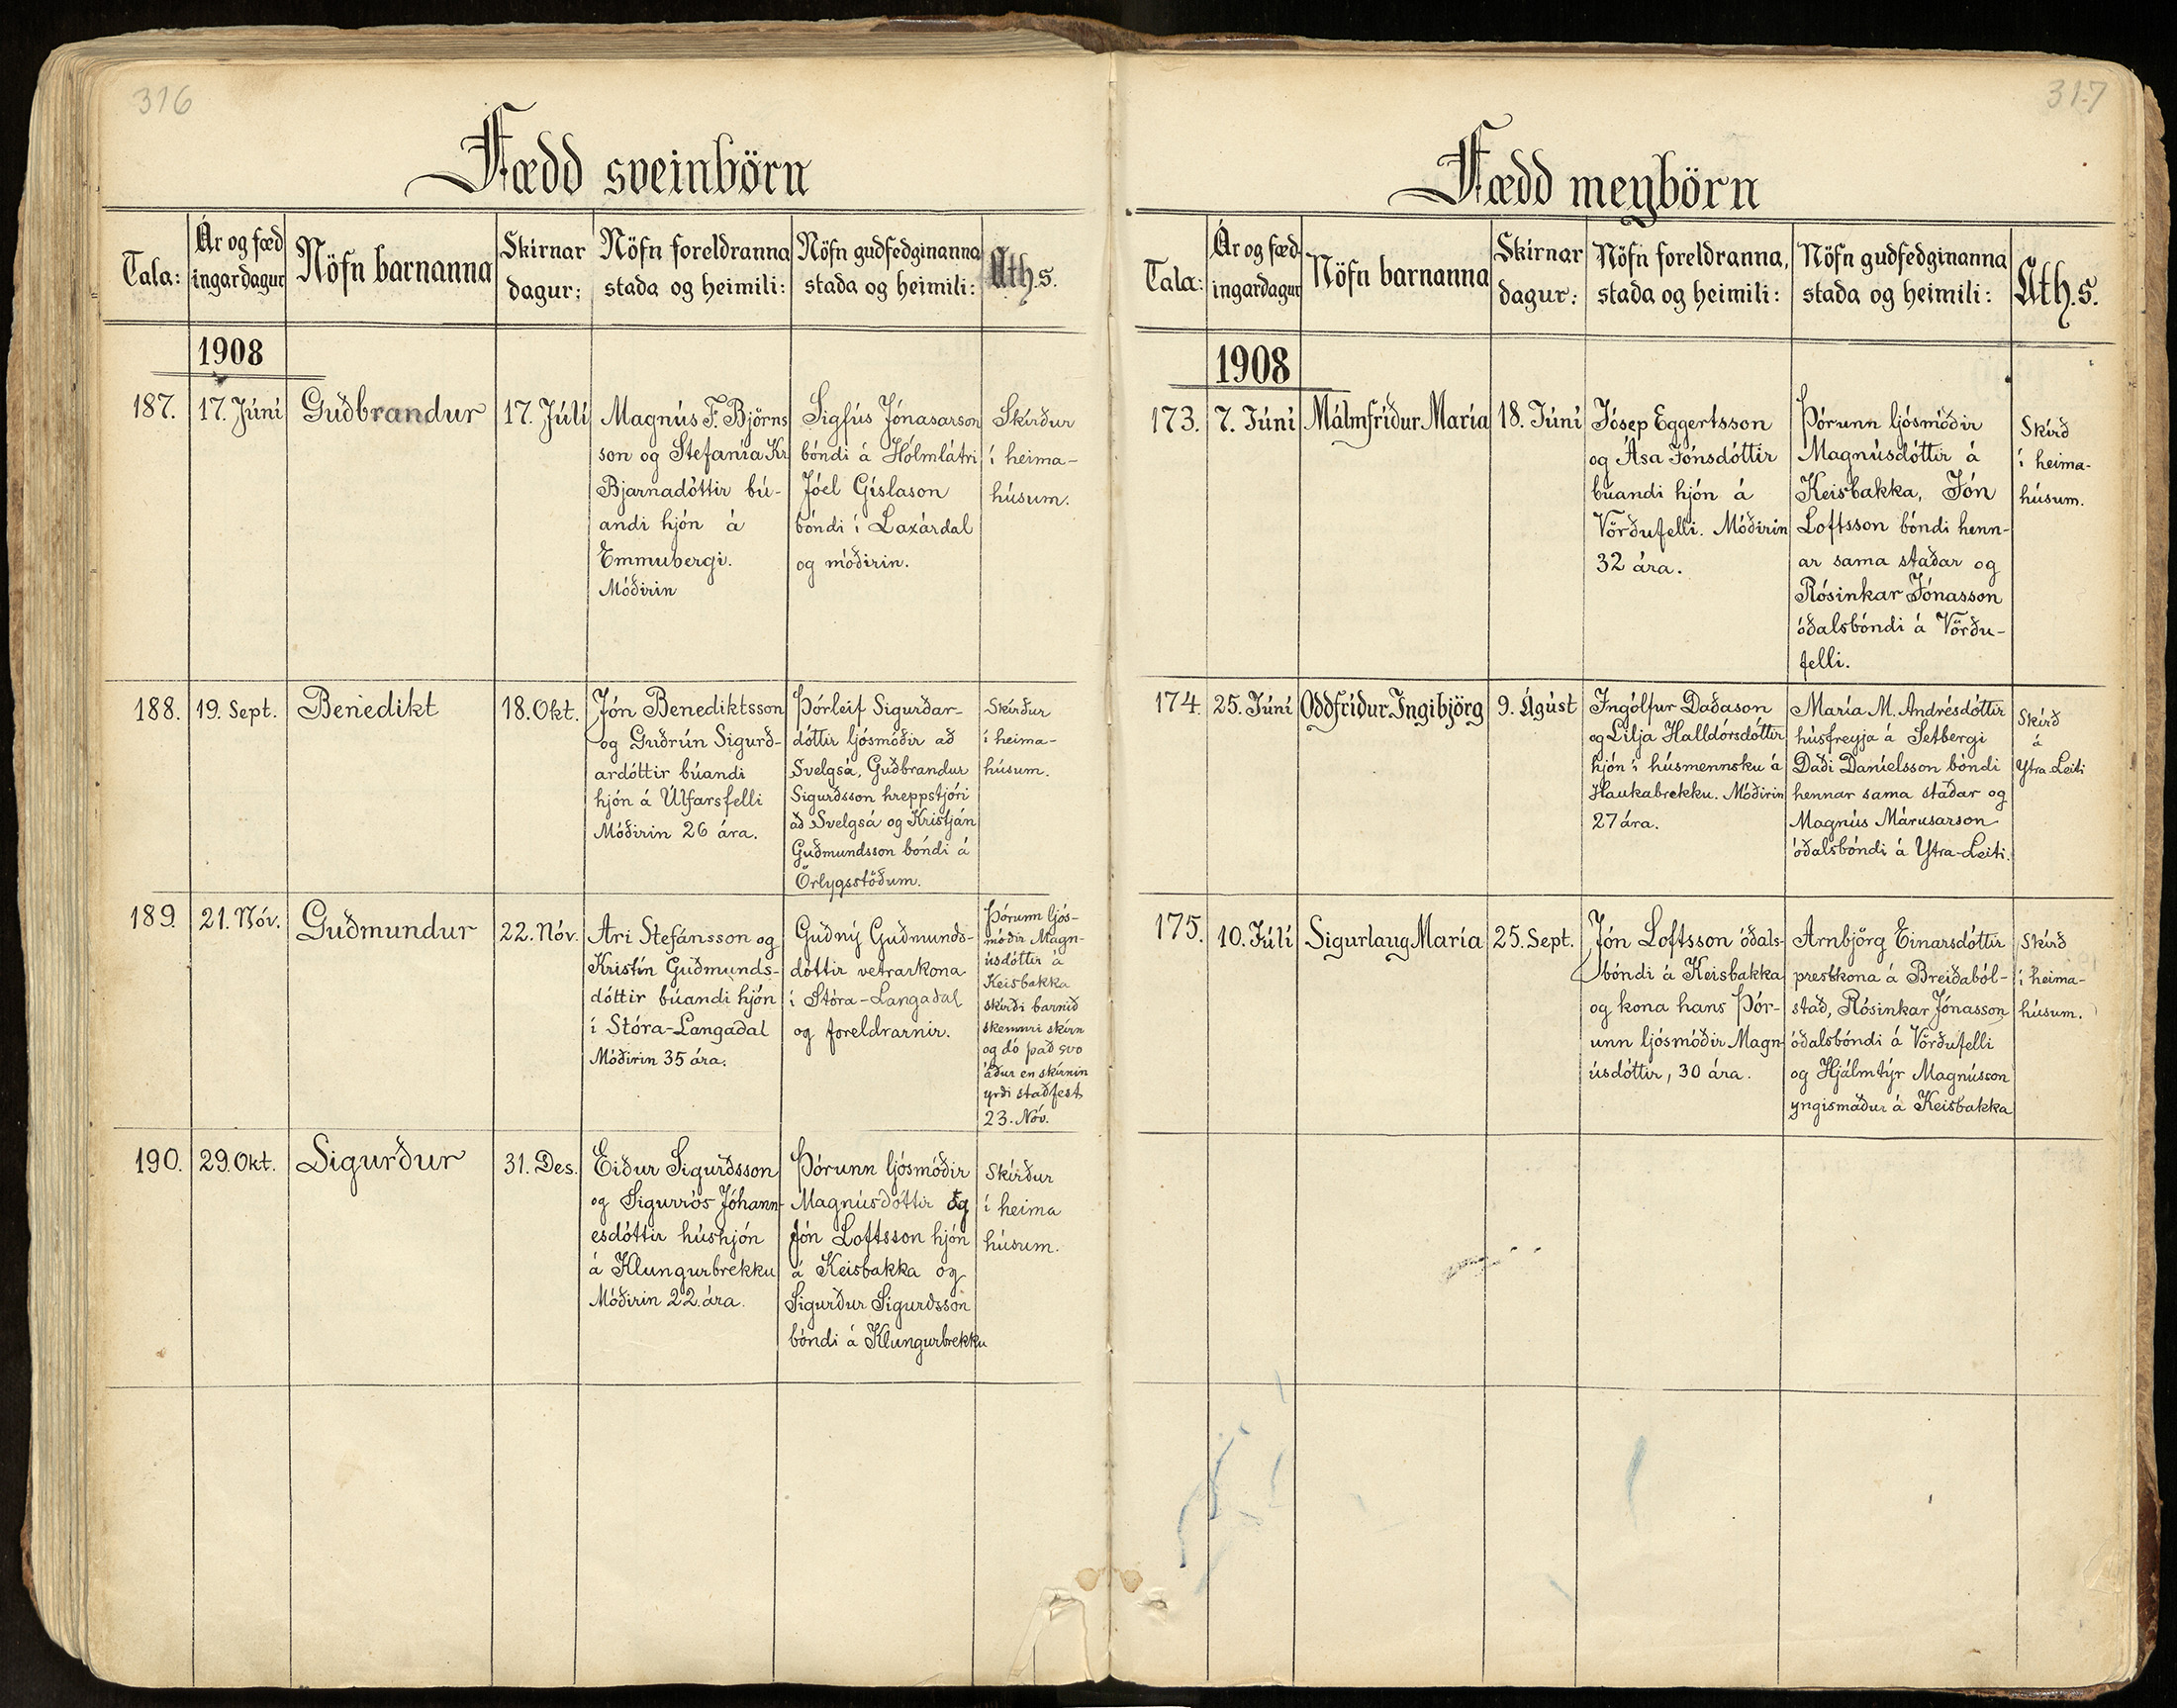 316
Fædd sveinbörn
Tala:
Ár og fæd
ingardagur
Nöfn barnanna
Skírnar
dagur:
Nöfn foreldranna
staða og heimili:
Nöfn guðfeðginanna
staða og heimili:
Ath.s.
1908
187.
17. Júní
Guðbrandur
17. Júlí
Magnús F. Björns
son og Stefanía Kr
Bjarnadóttir bú-
andi hjón á
Emmubergi.
Móðirin
Sigfús Jónasarson
bóndi á Hólmlátri
Jóel Gíslason
bóndi í Laxárdal
og móðirin.
Skírður
í heima-
húsum.
188.
19. Sept.
Benedikt
18. Okt.
Jón Benediktsson
og Guðrún Sigurð-
ardóttir búandi
hjón á Úlfarsfelli
Móðirin 26 ára.
Þórleif Sigurðar-
dóttir ljósmóðir að
Svelgsá, Guðbrandur
Sigurðsson hreppstjóri
að Svelgsá og Kristján
Guðmundsson bóndi á
Örlygsstöðum.
Skírður
í heima-
húsum.
189.
21. Nóv.
Guðmundur
22. Nóv.
Ari Stefánsson og
Kristín Guðmunds-
dóttir búandi hjón
í Stóra-Langadal
Móðirin 35 ára.
Guðný Guðmunds-
dóttir vetrarkona
í Stóra-Langadal
og foreldrarnir.
Þórunn ljós-
móðir Magn-
úsdóttir á
Keisbakka
skírði barnið
skemmri skírn
og dó það svo
áður en skírnin
yrði staðfest
23. Nóv.
190.
29. Okt.
Sigurður
31. Des.
Eiður Sigurðsson
og Sigurrós Jóhann-
esdóttir húshjón
á Klungurbrekku
Móðirin 22 ára.
Þórunn ljósmóðir
Magnúsdóttir og
Jón Loftsson hjón
á Keisbakka og
Sigurður Sigurðsson
bóndi á Klungurbrekku
Skírður
í heima
húsum.
317
Fædd meybörn
Tala:
Ár og fæd-
ingardagur
Nöfn barnanna
Skírnar
dagur:
Nöfn foreldranna,
staða og heimili:
Nöfn guðfeðginanna
staða og heimili:
Ath.s.
1908
173.
7. Júní
Málmfríður María
18. Júní
Jósep Eggertsson
og Ása Jónsdóttir
búandi hjón á
Vörðufelli. Móðirin
32 ára.
Þórunn ljósmóðir
Magnúsdóttir á
Keisbakka, Jón
Loftsson bóndi henn-
ar sama staðar og
Rósinkar Jónasson
óðalsbóndi á Vörðu-
felli.
Skírð
í heima-
húsum.
174.
25. Júní
Oddfríður Ingibjörg
9. Ágúst
Ingólfur Daðason
og Lilja Halldórsdóttir
hjón í húsmennsku á
Haukabrekku. Móðirin
27 ára.
María M. Andrésdóttir
húsfreyja á Setbergi
Daði Daníelsson bóndi
hennar sama staðar og
Magnús Márusarson
óðalsbóndi á Ytra-Leiti.
Skírð
á
Ytra-Leiti
175.
10. Júlí
Sigurlaug María
25. Sept.
Jón Loftsson óðals-
bóndi á Keisbakka
og kona hans Þór-
unn ljósmóðir Magn-
úsdóttir, 30 ára.
Arnbjörg Einarsdóttir
prestkona á Breiðaból-
stað, Rósinkar Jónasson
óðalsbóndi á Vörðufelli
og Hjálmtýr Magnússon
yngismaður á Keisbakka
Skírð
í heima-
húsum.